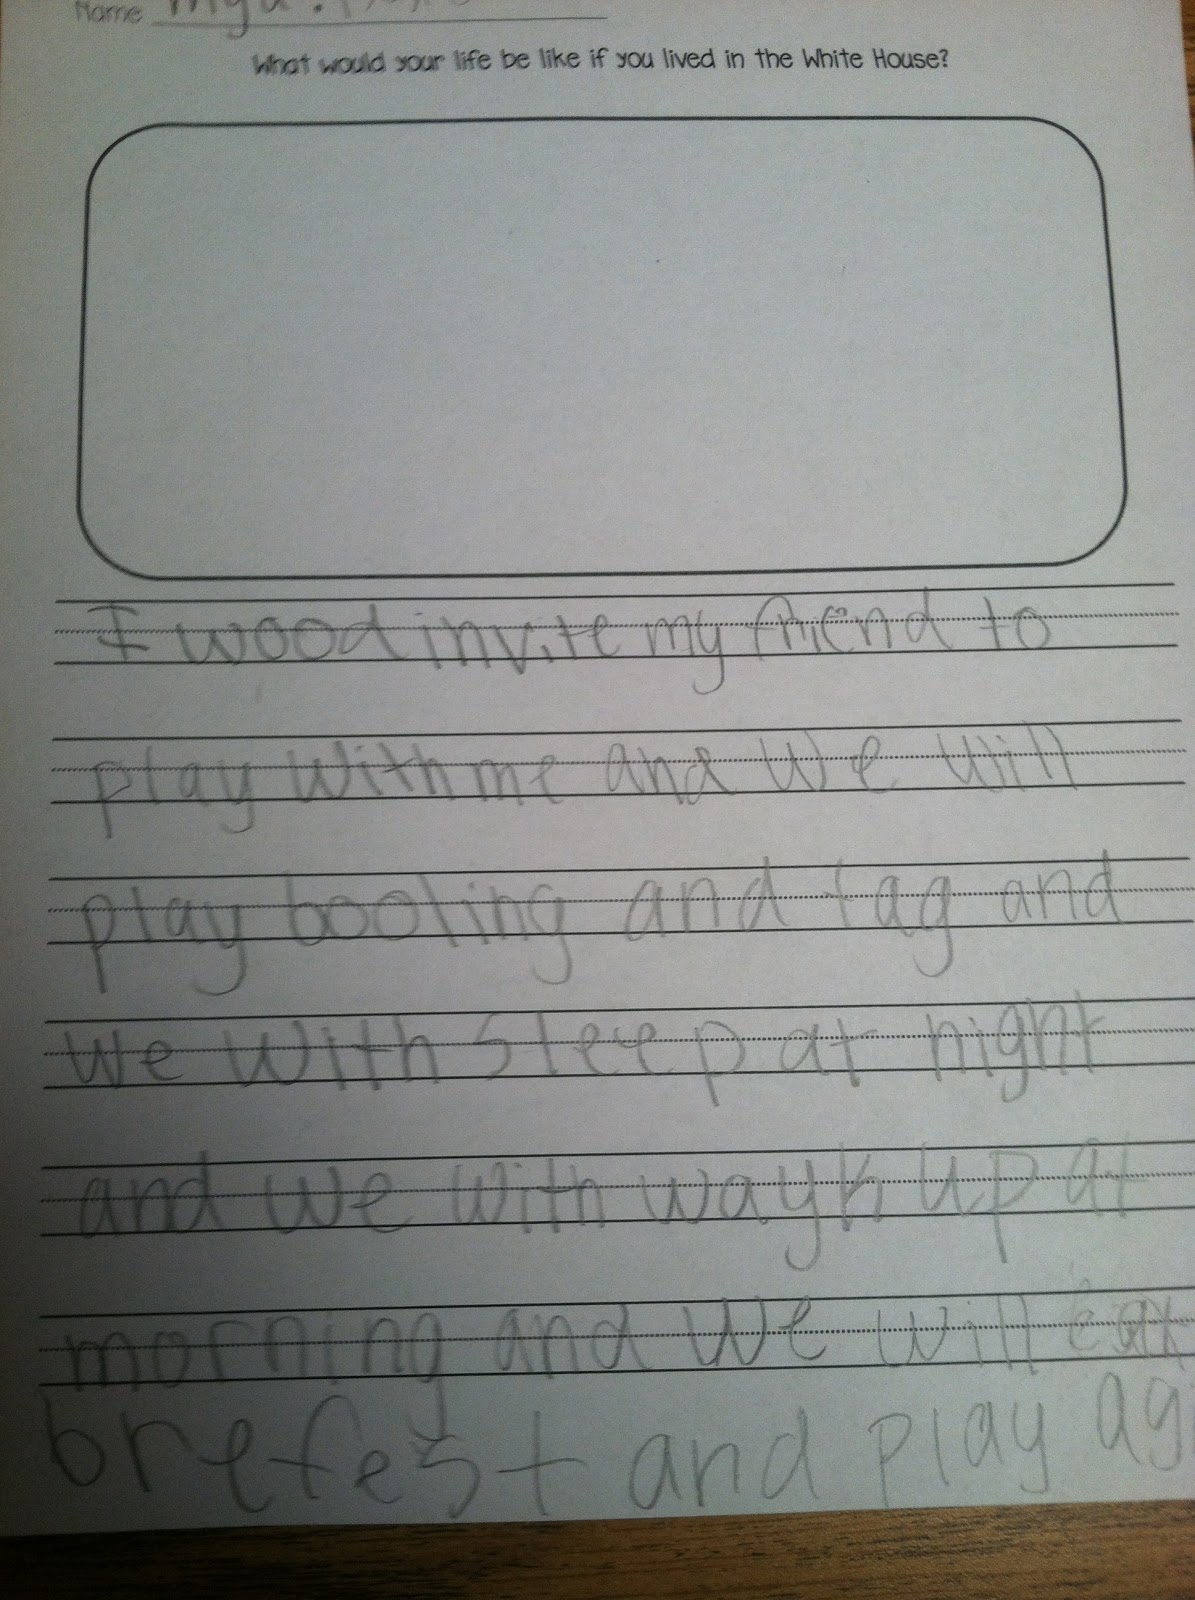 Name
What would your life be like if you lived in the White House?
I wood invite my friend to
play with me and we will
play booling and tag and
we with sleep at night
and we with wayk up at
morning and we will eat
brefest and play ag